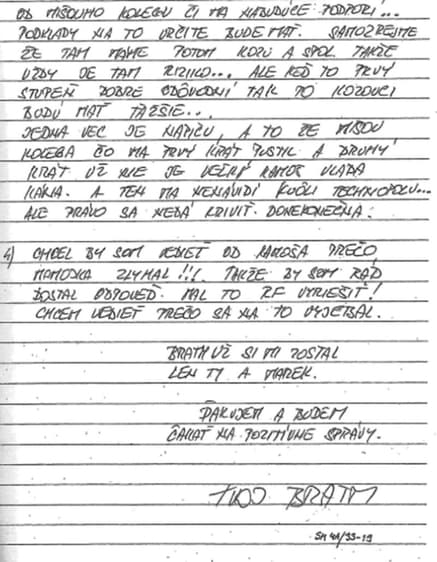 OD MIŠOVHO KOLEGU ČI MA NABUDÚCE PODPORÍ...
PODKLADY NA TO URČITE BUDE MAŤ. SAMOZREJME
ŽE TAM MÁME POTOM KOZU A SPOL. TAKŽE
VŽDY JE TAM RIZIKO... ALE KEĎ TO PRVÝ
STUPEŇ DOBRE ODÔVODNÍ TAK TO KOZOVCI
BUDÚ MAŤ ŤAŽŠIE...
JEDNA VEC JE NÁDEJ, A TO ŽE MIŠOV
KOLEGA ČO MA PRVÝ KRÁT PUSTIL A DRUHÝ
KRÁT UŽ NIE JE VEČNÝ KAMOŠ VLADA
A TEN MA NENÁVIDÍ KVÔLI TECHNOPOLU...
ALE PRÁVO SA NEDÁ KRIVIŤ DONEKONEČNA!
4) CHCEL BY SOM VEDIEŤ OD KAMOŠA PREČO
MAMOJKA ZLYHAL!!! TAKŽE BY SOM RÁD
DOSTAL ODPOVEĎ. MAL TO RF VYRIEŠIŤ!
CHCEM VEDIEŤ PREČO SA NA TO VYJEBAL.
BRATM UŽ SI MI ZOSTAL
LEN TY A MAREK.
ĎAKUJEM A BUDEM
ČAKAŤ NA POZITÍVNE SPRÁVY.
TVOJ BRATM